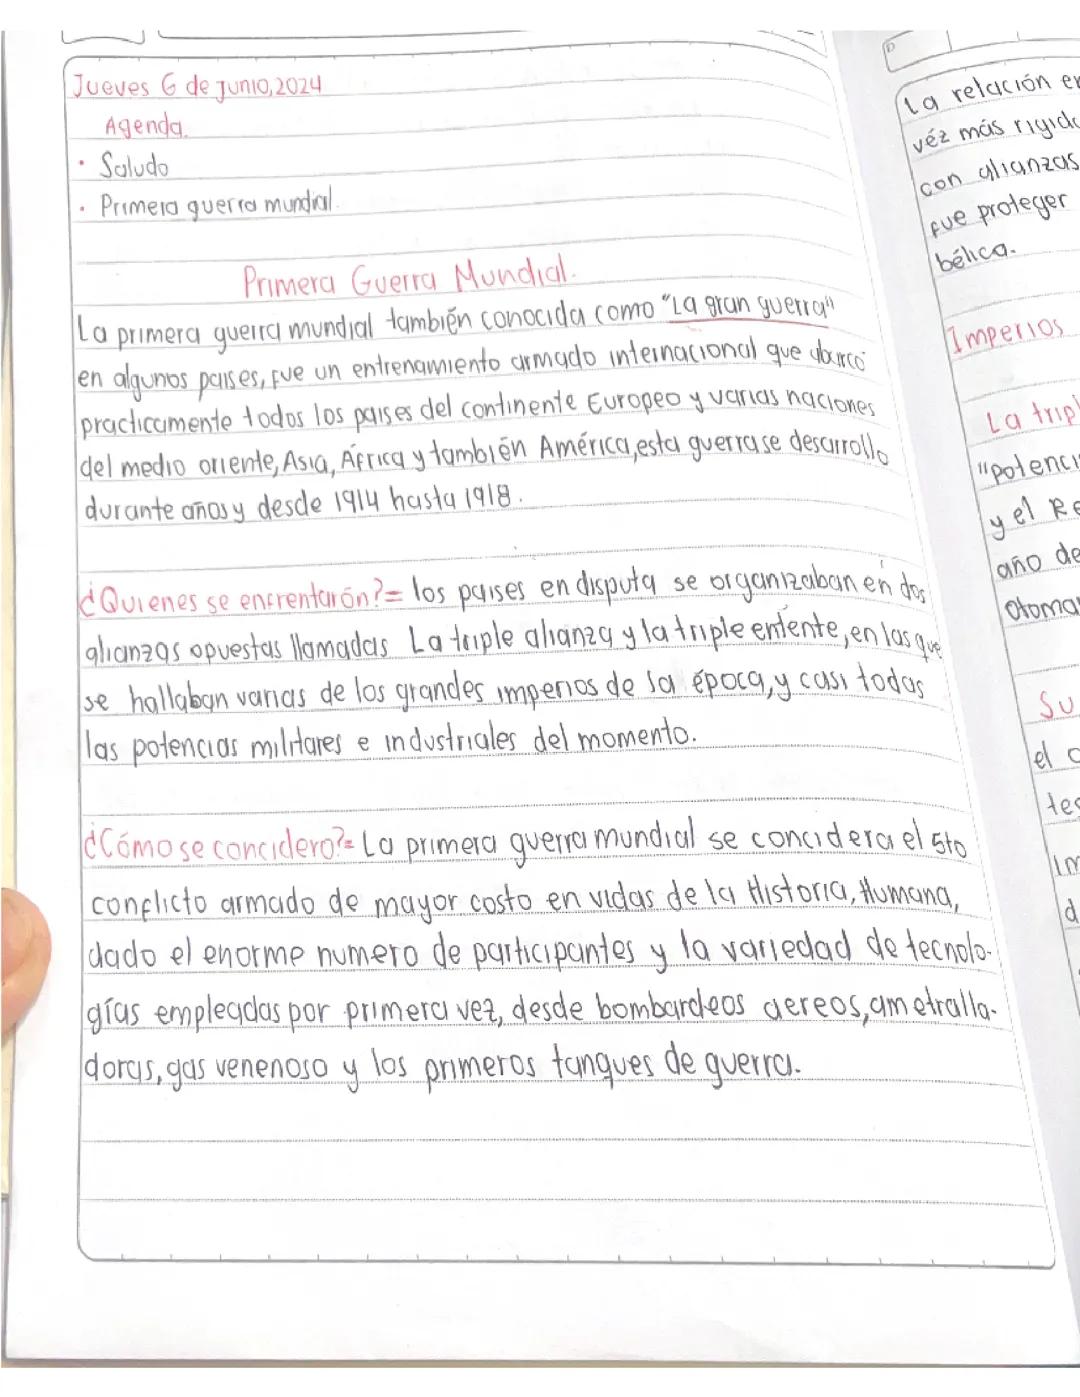 Jueves 6 de junio, 2024
Agenda.
· Saludo
· Primera guerra mundial.
Primera Guerra Mundial.
La primera guerra mundial también conocida como "La gran guerra"
en algunos paises, fue un entrenamiento armado internacional que abarco
practicamente todos los paises del continente Europeo y varias naciones
del medio oriente, Asia, África y también América, esta guerra se desarrollo
durante años y desde 1914 hasta 1918.
¿Quienes se enfrentarón?= los paises en disputa se organizaban en dos
alianzas opuestas llamadas La triple alianza y la triple entente, en las que
se hallaban varias de los grandes imperios de la época, y casi todas
las potencias militares e industriales del momento.
¿Cómo se concidero?= La primera guerra mundial se concidera el 5to
conflicto armado de mayor costo en vidas de la Historia, Humana,
dado el enorme numero de participantes y la variedad de tecnolo-
gías empleadas por primera vez, desde bombardeos aereos, ametralla-
doras, gas venenoso y los primeros tanques de guerra.
D
La relación en
véz más rigida
con alianzas
fue proteger
bélica.
Imperios
La tripl
"potenci
y el Re
año de
Otoma
Su
el
tes
im
d